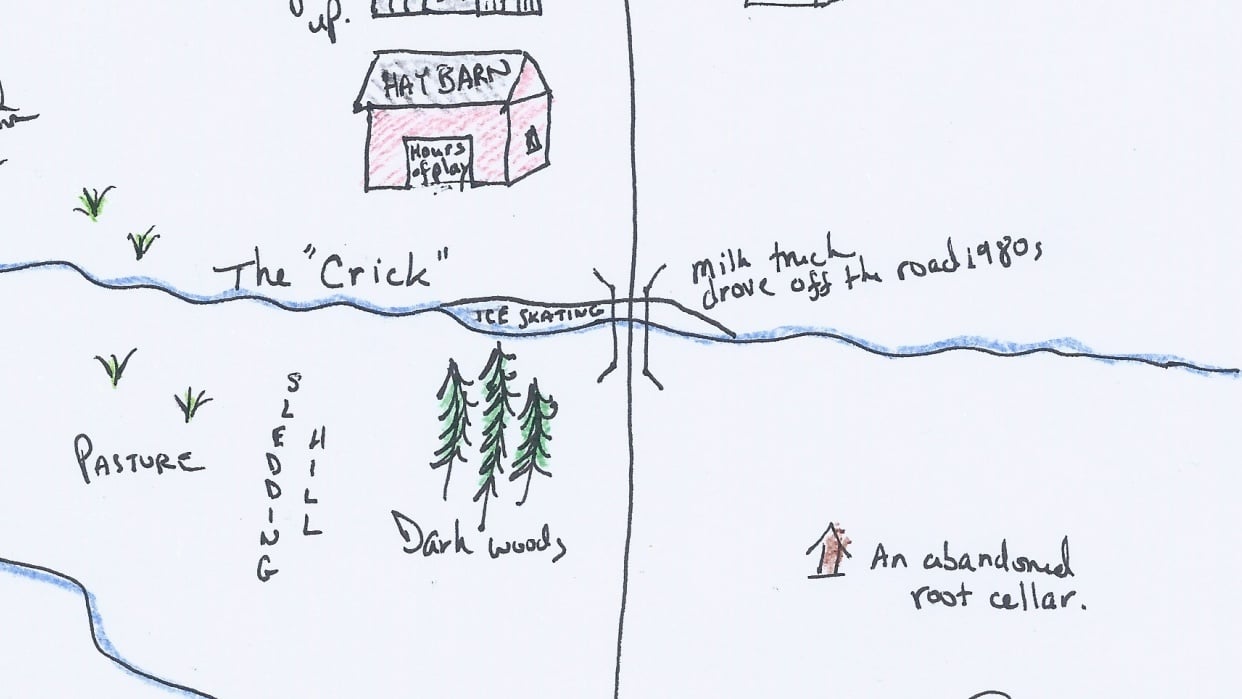 up.
HAY BARN
Hours
of play
The "Crick"
milk truck
drove off the road 1980s
ICE SKATING
SLEDDING
HILL
PASTURE
Dark woods
An abandoned
root cellar.